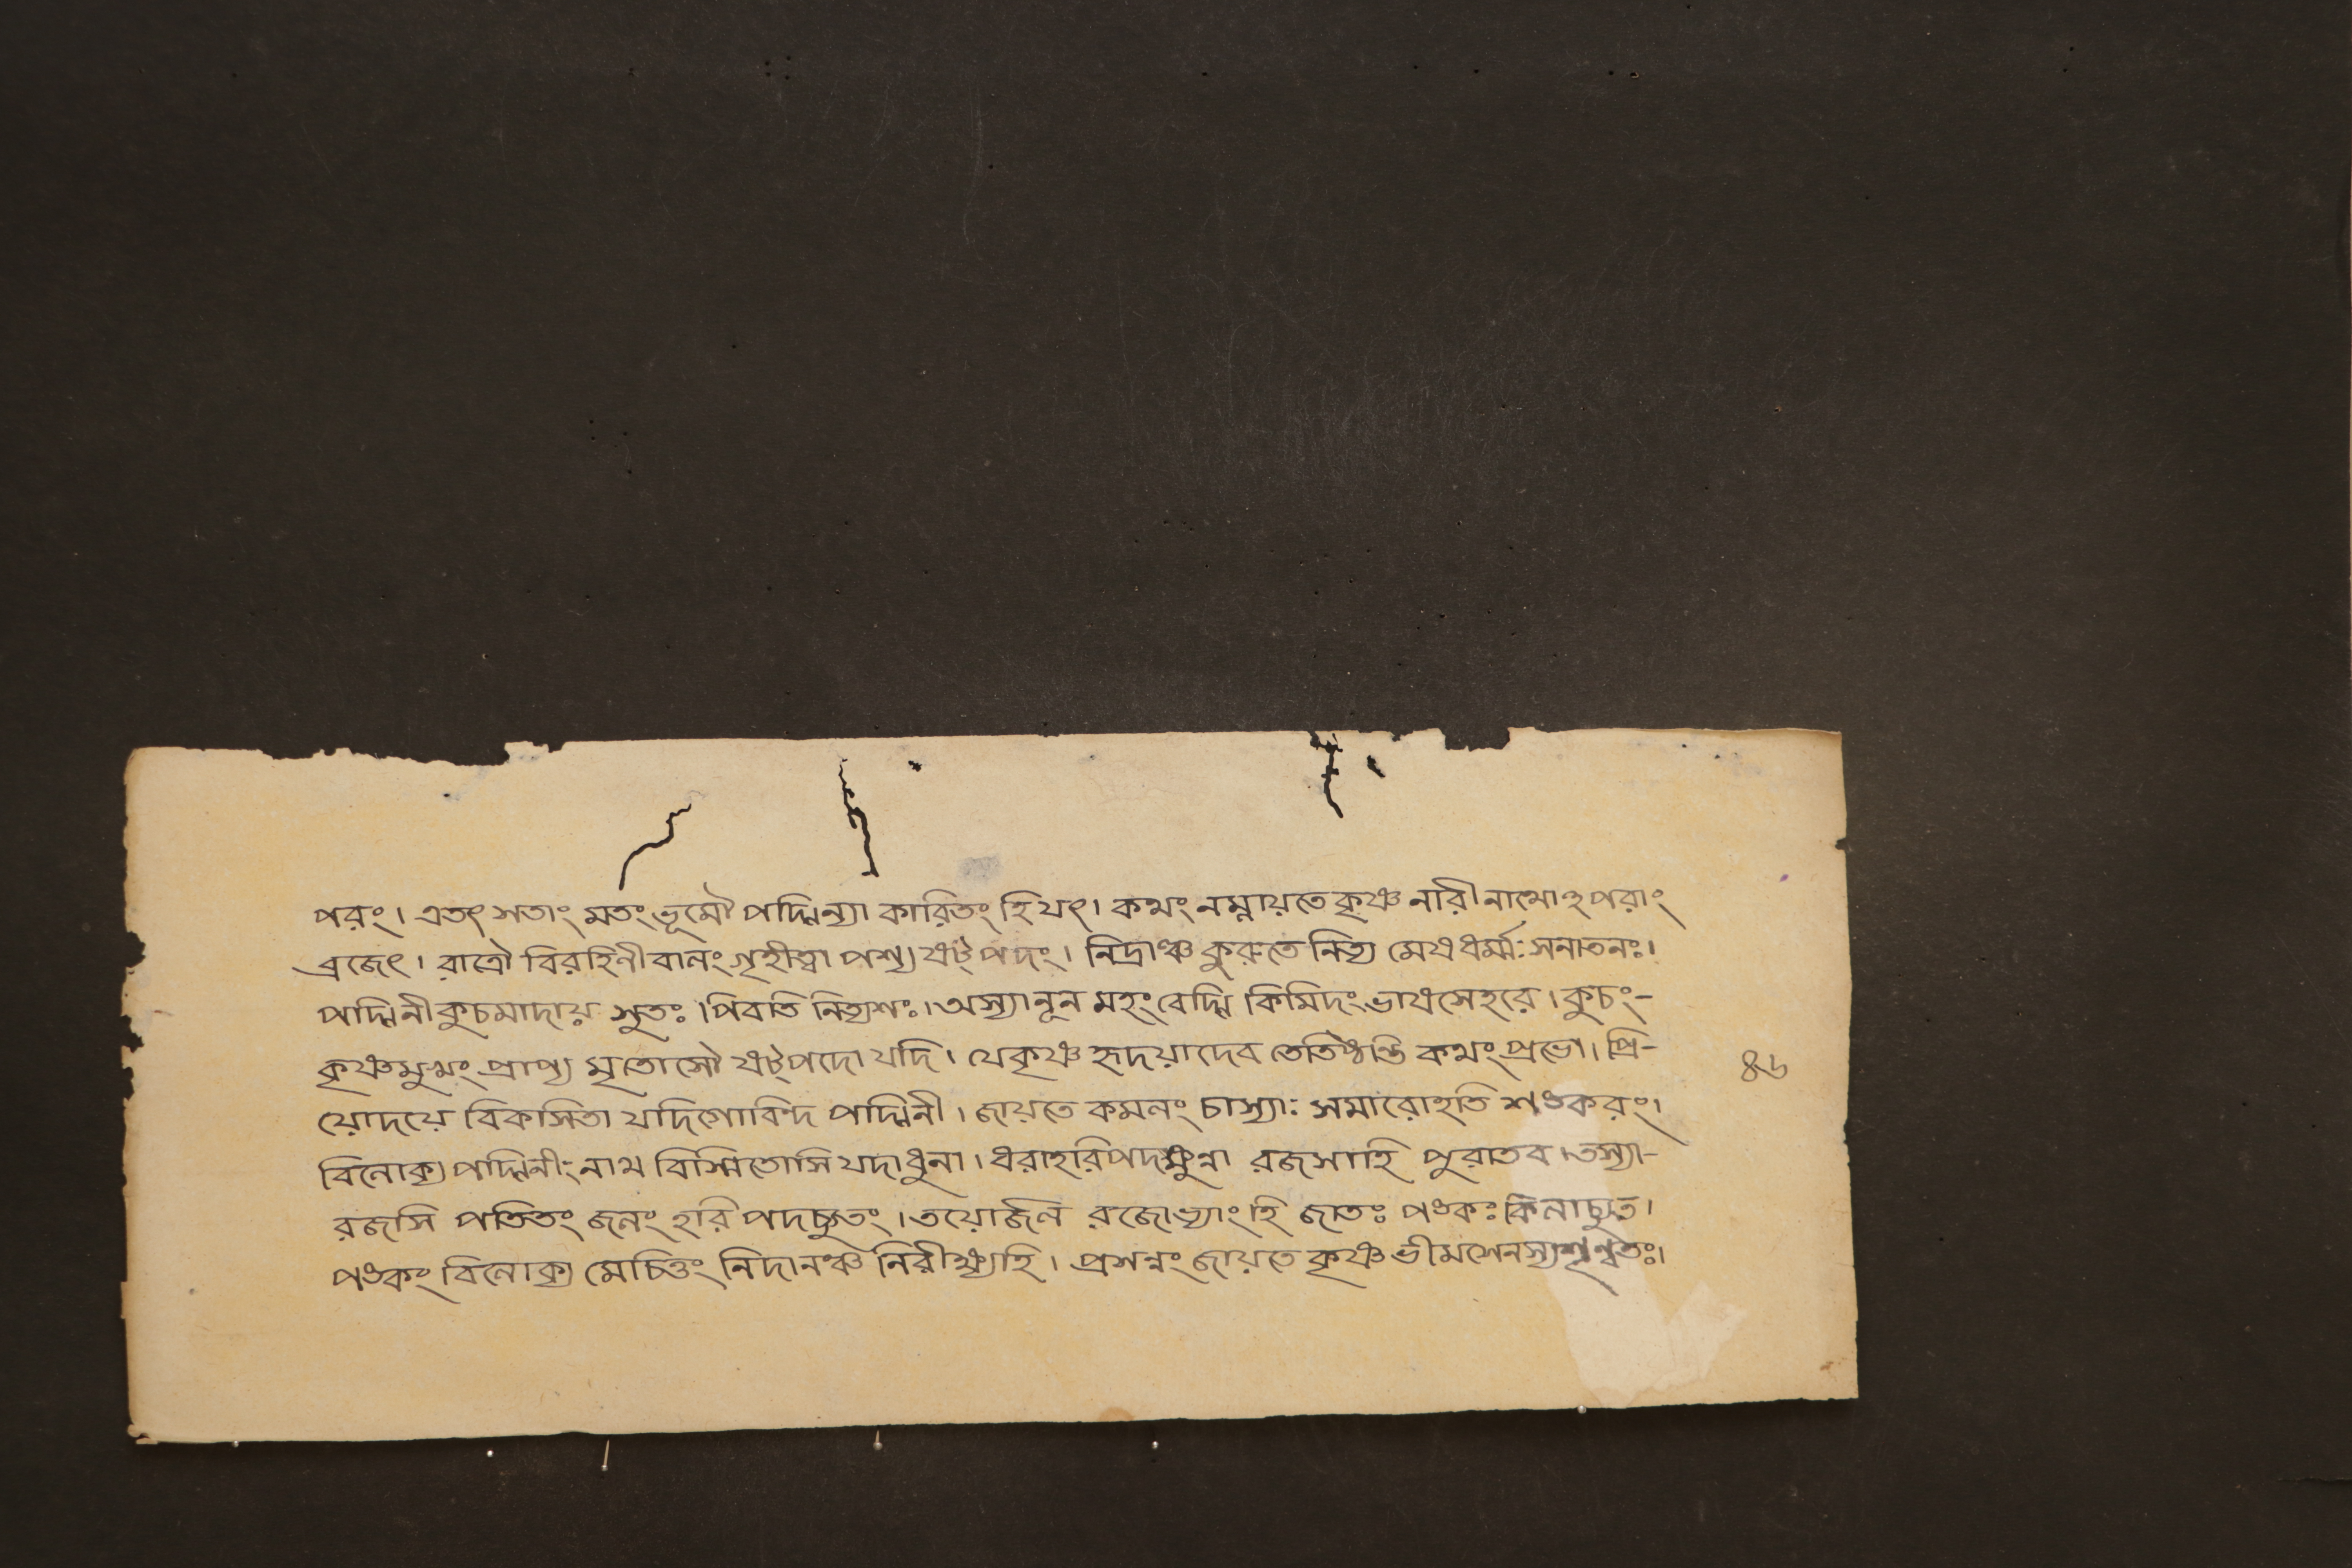 পরং। এতৎ সতাং মতং ভূমৌ পদ্মিন্যা কারিতং হি যৎ। কথং নম্লায়তে কৃষ্ণ নারী নাথোঽপরাং
ব্রজেৎ। রাত্রৌ বিরহিনী বালং গৃহীত্বা পশ্য ষট্পদং। নিদ্রাঞ্চ কুরুতে নিত্য মেষ ধর্ম্মঃ সনাতনঃ।
পদ্মিনী কুচমাদায় সুতঃ পিবতি নিত্যশঃ। অস্যা নূন মহং বেদ্মি কিমিদং ভাষসে হরে। কুচং-
কৃষ্ণমুখং প্রাপ্য মৃতোসৌ ষট্পদো যদি। যে কৃষ্ণ হৃদয়াদেব তেতিষ্ঠন্তি কথং প্রভো। প্রি-
য়োদয়ে বিকসিতা যদি গোবিন্দ পদ্মিনী। জায়তে কমলং চাস্যাঃ সমারোহতি শঙকরং।
বিলোক্য পদ্মিনীং নাথ বিস্মিতোসি যদাধুনা। ধরাহরিপদক্ষুন্না রজসাহি পুরাতব। তস্যা-
রজসি পতিতং জলং হরি পদচ্যুতং। তয়োর্জল রজোভ্যাং হি জাতঃ পঙকঃ কিলাচ্যুত।
পঙকং বিলোক্য মেচিত্তং নিদানঞ্চ নিরীক্ষ্যহি। প্রসন্নং জায়তে কৃষ্ণ ভীমসেনস্য শৃণ্বতঃ।
৪৬